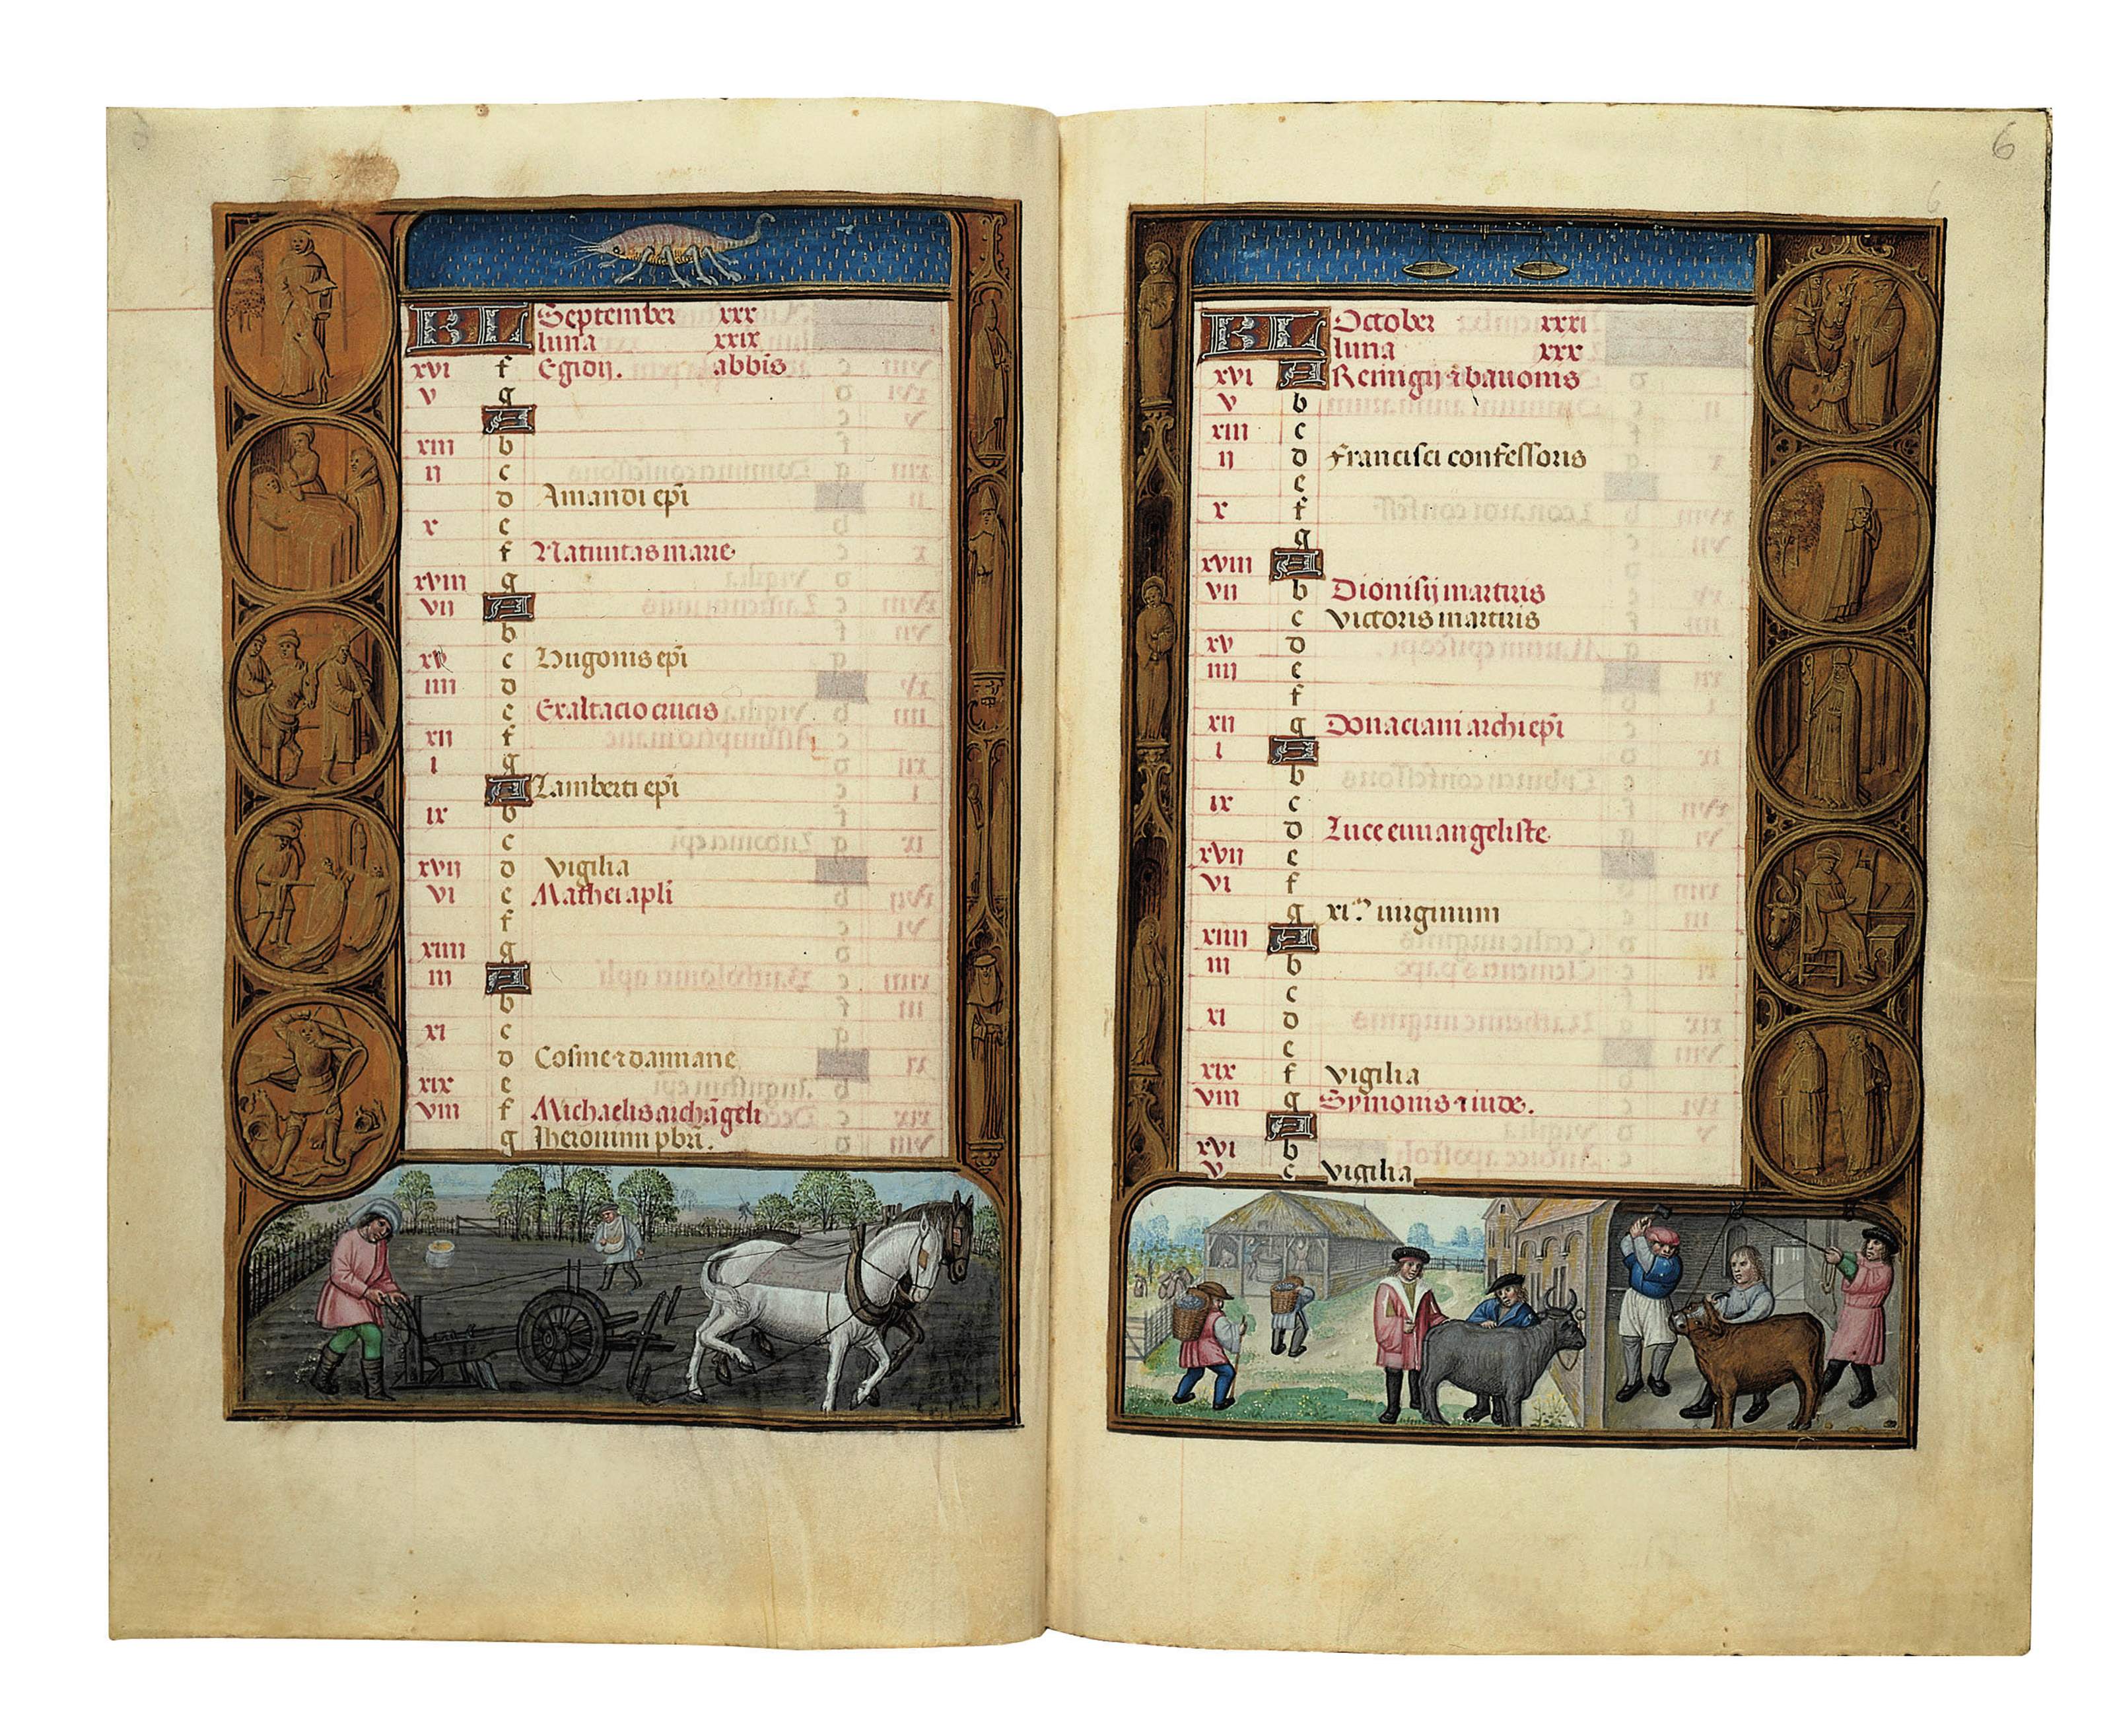 KL September xxx
luna xxix
xvi f Egidij. abbis
v g
A
xiii b
ii c
d Amandi epi
x e
f Natiuitas marie
xviii g
vii A
b
xv c Hugonis epi
iiii d
e Exaltacio crucis
xii f
i g
A Lamberti epi
ix b
c
xvii d vigilia
vi e Mathei apli
f
xiiii g
iii A
b
xi c
d Cosme & damiane
xix e
viii f Michaelis archāgeli
g Jheronimi pbri.
6
KL October xxxi
luna xxx
xvi A Remigij & bauonis
v b
xiii c
ii d Francisci confessoris
e
x f
g
xviii A
vii b Dionisij martiris
c victoris martiris
xv d
iiii e
f
xii g Donaciani archiepi
i A
b
ix c
d Luce euuangeliste
xvii e
vi f
g xi.ᵐ uirginum
xiiii A
iii b
c
xi d
e
xix f vigilia
viii g Symonis & iude.
A
xvi b
v c vigilia